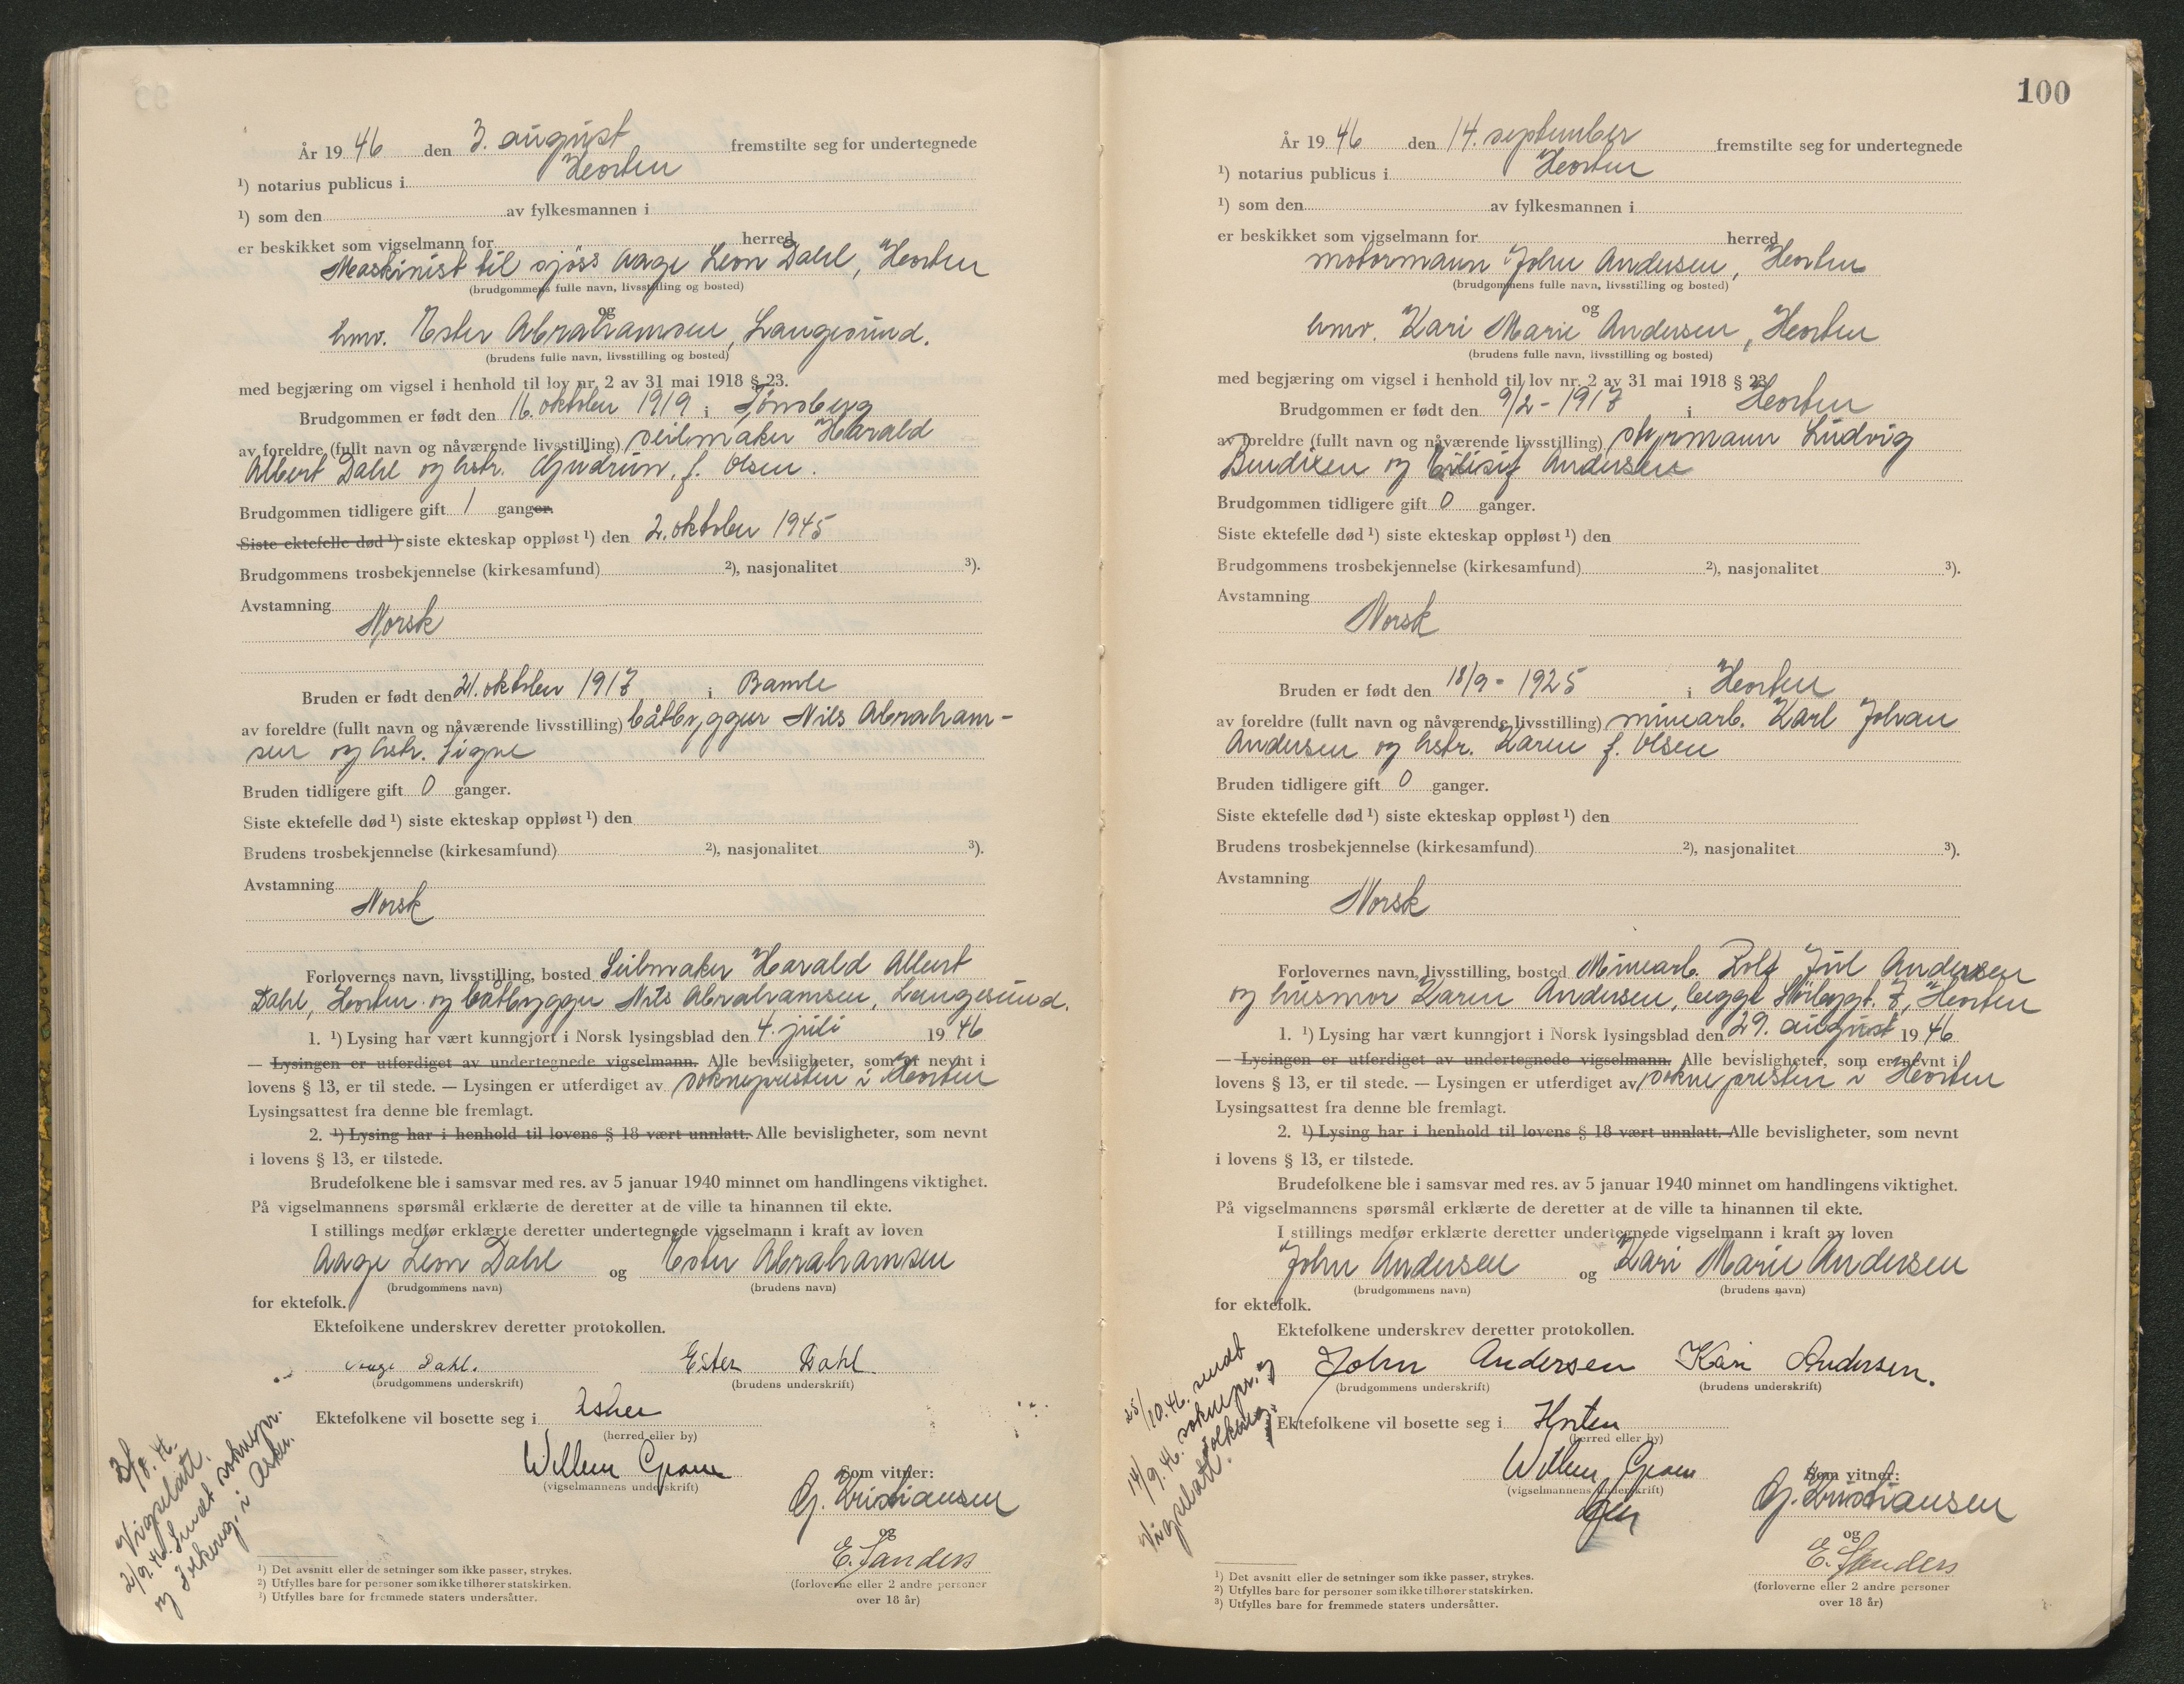 År 19 46 den 3. august fremstilte seg for undertegnede
¹) notarius publicus i Horten
¹) som den av fylkesmannen i
er beskikket som vigselmann for herred
Maskinist til sjøss Aage Leon Dahl, Horten
(brudgommens fulle navn, livsstilling og bosted)
og
hmv. Ester Abrahamsen, Langesund.
(brudens fulle navn, livsstilling og bosted)
med begjæring om vigsel i henhold til lov nr. 2 av 31 mai 1918 § 23.
Brudgommen er født den 16. oktober 1919 i Tønsberg
av foreldre (fullt navn og nåværende livsstilling) seilmaker Harald
Albert Dahl og hstr. Gudrun, f. Olsen.
Brudgommen tidligere gift 1 ganger.
Siste ektefelle død ¹) siste ekteskap oppløst ¹) den 2. oktober 1945
Brudgommens trosbekjennelse (kirkesamfund) ²), nasjonalitet ³).
Avstamning
Norsk
Bruden er født den 21. oktober 1917 i Bamle
av foreldre (fullt navn og nåværende livsstilling) båtbygger Nils Abraham-
sen og hstr. Signe
Bruden tidligere gift 0 ganger.
Siste ektefelle død ¹) siste ekteskap oppløst ¹) den
Brudens trosbekjennelse (kirkesamfund) ²), nasjonalitet ³).
Avstamning
Norsk
Forlovernes navn, livsstilling, bosted Seilmaker Harald Albert
Dahl, Horten og båtbygger Nils Abrahamsen, Langesund.
1. ¹) Lysing har vært kunngjort i Norsk lysingsblad den 4. juli 19 46
— Lysingen er utferdiget av undertegnede vigselmann. Alle bevisligheter, som er nevnt i
lovens § 13, er til stede. — Lysingen er utferdiget av sokneprest­en i Horten
Lysingsattest fra denne ble fremlagt.
2. ¹) Lysing har i henhold til lovens § 18 vært unnlatt. Alle bevisligheter, som nevnt
i lovens § 13, er tilstede.
Brudefolkene ble i samsvar med res. av 5 januar 1940 minnet om handlingens viktighet.
På vigselmannens spørsmål erklærte de deretter at de ville ta hinannen til ekte.
I stillings medfør erklærte deretter undertegnede vigselmann i kraft av loven
Aage Leon Dahl og Ester Abrahamsen
(brudgommens navn) (brudens navn)
for ektefolk.
Ektefolkene underskrev deretter protokollen.
Aage Dahl. Ester Dahl
(brudgommens underskrift) (brudens underskrift)
Ektefolkene vil bosette seg i Asker
(herred eller by)
Willem Som vitner:
(vigselmannens underskrift)
G. Kristiansen
og
E. Sanders
(forloverne eller 2 andre personer
over 18 år)
3/8. 46.
Vigselatt.
2/9.46. Sendt soknepr.
og folkereg. i Asker.
¹) Det avsnitt eller de setninger som ikke passer, strykes.
²) Utfylles bare for personer som ikke tilhører statskirken.
³) Utfylles bare for fremmede staters undersåtter.
100
År 19 46 den 14. september fremstilte seg for undertegnede
¹) notarius publicus i Horten
¹) som den av fylkesmannen i
er beskikket som vigselmann for herred
motormann John Andersen, Horten
(brudgommens fulle navn, livsstilling og bosted)
og
hmv. Kari Marie Andersen, Horten
(brudens fulle navn, livsstilling og bosted)
med begjæring om vigsel i henhold til lov nr. 2 av 31 mai 1918 § 23
Brudgommen er født den 9/2 - 1917 i Horten
av foreldre (fullt navn og nåværende livsstilling) styrmann Ludvig
Bendixen og Andersen
Brudgommen tidligere gift 0 ganger.
Siste ektefelle død ¹) siste ekteskap oppløst ¹) den
Brudgommens trosbekjennelse (kirkesamfund) ²), nasjonalitet ³).
Avstamning
Norsk
Bruden er født den 18/9 - 1925 i Horten
av foreldre (fullt navn og nåværende livsstilling) minearb. Karl Johan
Andersen og hstr. Karen f. Olsen
Bruden tidligere gift 0 ganger.
Siste ektefelle død ¹) siste ekteskap oppløst ¹) den
Brudens trosbekjennelse (kirkesamfund) ²), nasjonalitet ³).
Avstamning
Norsk
Forlovernes navn, livsstilling, bosted Minearb. Rolf Juul Andersen
og husmor Karen Andersen, begge 7, Horten
1. ¹) Lysing har vært kunngjort i Norsk lysingsblad den 29. august 19 46
— Lysingen er utferdiget av undertegnede vigselmann. Alle bevisligheter, som er nevnt i
lovens § 13, er til stede. — Lysingen er utferdiget av sokneprest­en i Horten
Lysingsattest fra denne ble fremlagt.
2. ¹) Lysing har i henhold til lovens § 18 vært unnlatt. Alle bevisligheter, som nevnt
i lovens § 13, er tilstede.
Brudefolkene ble i samsvar med res. av 5 januar 1940 minnet om handlingens viktighet.
På vigselmannens spørsmål erklærte de deretter at de ville ta hinannen til ekte.
I stillings medfør erklærte deretter undertegnede vigselmann i kraft av loven
John Andersen og Kari Marie Andersen
(brudgommens navn) (brudens navn)
for ektefolk.
Ektefolkene underskrev deretter protokollen.
John Andersen Kari Andersen.
(brudgommens underskrift) (brudens underskrift)
Ektefolkene vil bosette seg i Horten
(herred eller by)
Willem Som vitner:
(vigselmannens underskrift)
G. Kristiansen
og
E. Sanders
(forloverne eller 2 andre personer
over 18 år)
25/10.46. sendt
soknepr. og
folkereg.
14/9.46.
Vigselatt.
¹) Det avsnitt eller de setninger som ikke passer, strykes.
²) Utfylles bare for personer som ikke tilhører statskirken.
³) Utfylles bare for fremmede staters undersåtter.